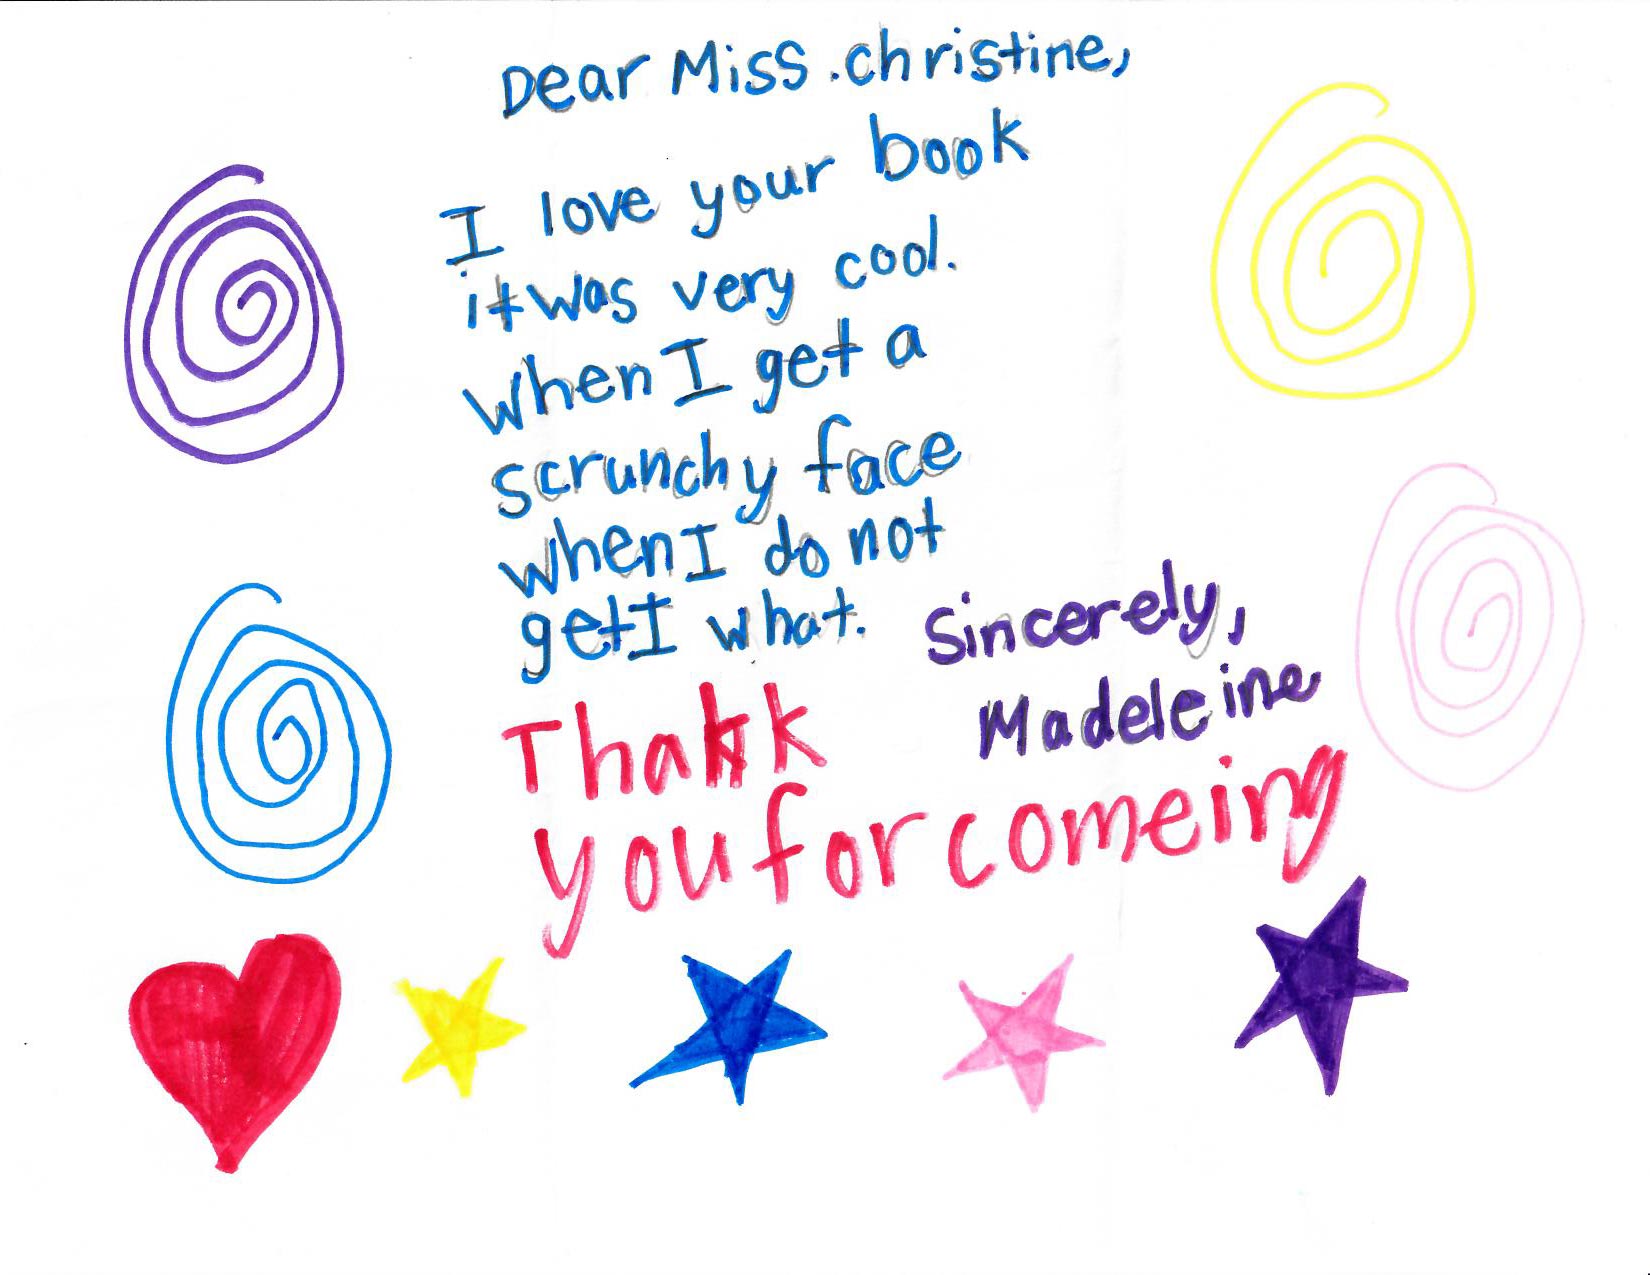 Dear Miss.christine,
I love your book
it was very cool.
when I get a
scrunchy face
when I do not
get I what.
Sincerely,
Madeleine
Thakk
you for comeing